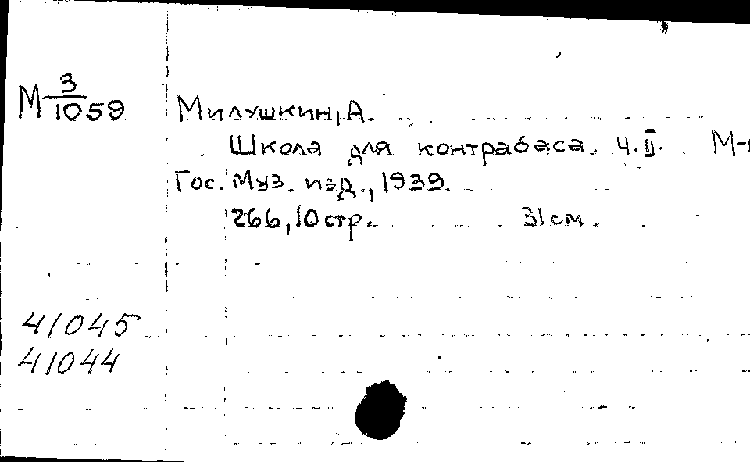 М 3/1059
Милушкин, А.
Школа для контрабаса. Ч. II. М-
Гос. Муз. изд., 1939.
266, 10 стр. 31 см.
41045
41044